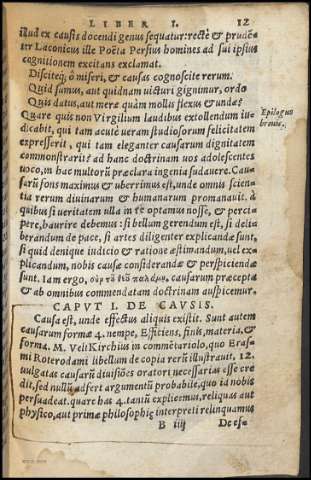 LIBER I. 12
illud ex causis docendi genus sequatur: rectè & prudē
ter Laconicus ille Poëta Persius homines ad sui ipsius
cognitionem excitans exclamat.
Disciteq́; ô miseri, & causas cognoscite rerum.
Quid sumus, aut quidnam uicturi gignimur, ordo
Quis datus, aut metæ quàm mollis flexus & undæ?
Quare quis non Virgilium laudibus extollendum iu-
dicabit, qui tam acutè ueram studiosorum felicitatem
expresserit, qui tam eleganter causarum dignitatem
commonstrarit? ad hanc doctrinam uos adolescentes
uoco, in hac multorū præclara ingenia sudauere. Cau-
sarū fons maximus & uberrimus est, unde omnis scien-
tia rerum diuinarum & humanarum promanauit. à
quibus si ueritatem ulla in re optamus nosse, & perci-
pere, haurire debemus: si bellum gerendum est, si deli-
berandum de pace, si artes diligenter explicandæ sunt,
si quid denique iudicio & ratione æstimandum, uel ex-
plicandum, nobis causæ considerandæ & perspiciendæ
sunt. Iam ergo, causarum præcepta
& ab omnibus commendatam doctrinam auspicemur.
Epilogus
breuis.
CAPVT I. DE CAVSIS.
Causa est, unde effectus aliquis existit. Sunt autem
causarum formæ 4. nempe, Efficiens, finis, materia, &
forma. M. Velt Kirchius in commētariolo, quo Eras-
mi Roterodami libellum de copia rerū illustrauit, 12.
uulgatas causarū diuisiões oratori necessarias esse cre
dit, sed nullū adfert argumentū probabile, quo id nobis
persuadeat. quare has 4. tantū explicemus, reliquas aut
physico, aut primæ philosophiæ interpreti relinquamus
B iiij De ef-